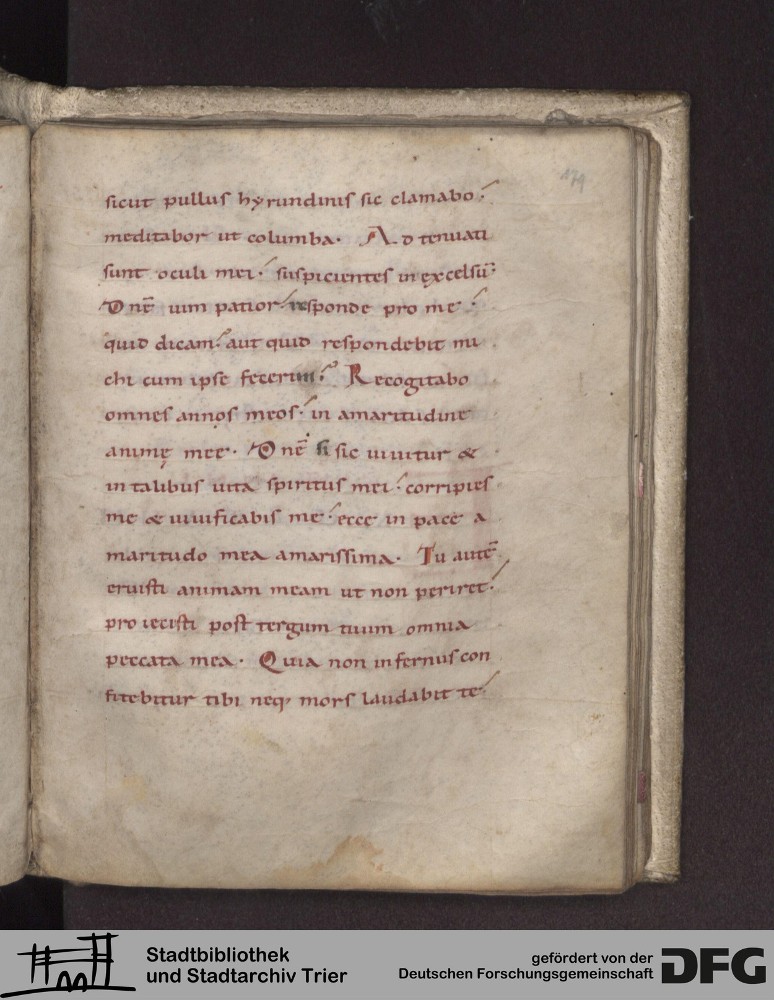 179
sicut pullus hyrundinis sic clamabo
meditabor ut columba. Adtenuati
sunt oculi mei. suspicientes inexcelsū
Dnē uim patior. responde pro me
quid dicam. aut quid respondebit mi
chi cum ipse fecerim. Recogitabo
omnes annos meos. in amaritudine
animę mee. Dnē si sic uiuitur &
in talibus uita spiritus mei. corripies
me & uiuificabis me. ecce in pace a
maritudo mea amarissima. Tu autē
eruisti animam meam ut non periret.
proiecisti post tergum tuum omnia
peccata mea. Quia non infernus con
fitebitur tibi neq; mors laudabit te
Stadtbibliothek
und Stadtarchiv Trier
gefördert von der
Deutschen Forschungsgemeinschaft
DFG